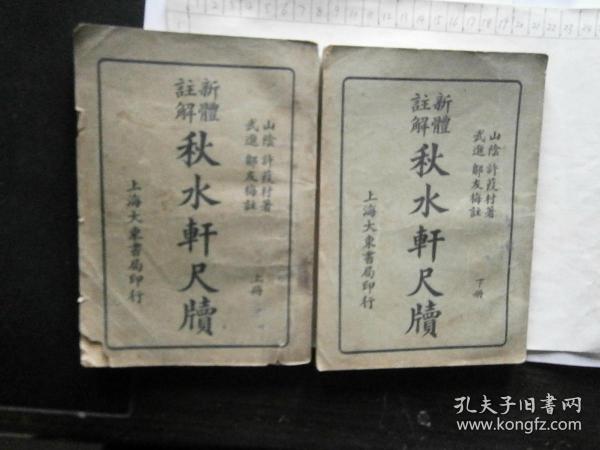 新體
註解
山陰 許葭村著
武進 鄒友梅註
秋水軒尺牘
上冊
上海大東書局印行
新體
註解
山陰 許葭村著
武進 鄒友梅註
秋水軒尺牘
下冊
上海大東書局印行
孔夫子旧书网
www.kongfz.com